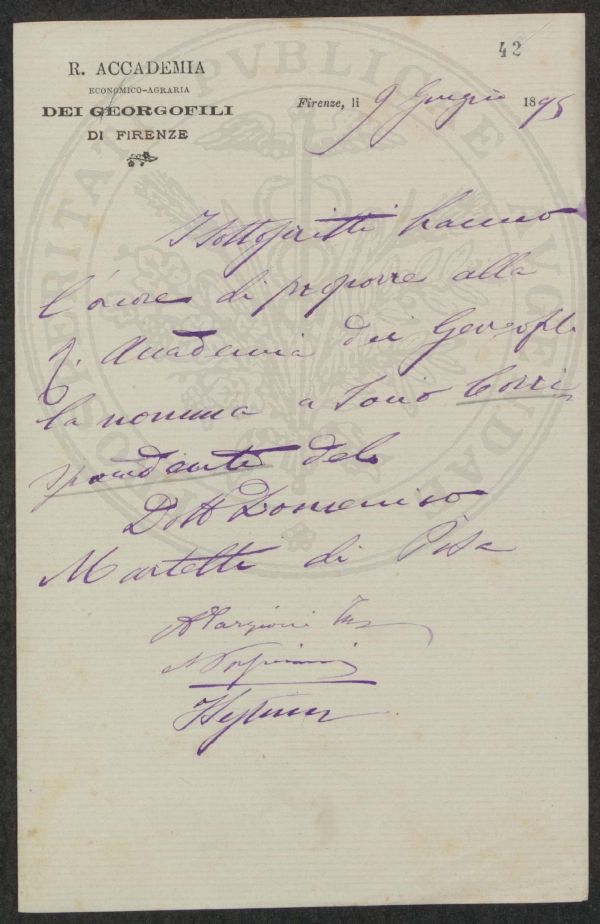 42
R. ACCADEMIA
ECONOMICO-AGRARIA
DEI GEORGOFILI
DI FIRENZE
Firenze, li 9 Giugno 1895
PROSPERITATI PVBLICAE AVGENDAE
I sottoscritti hanno
l'onore di proporre alla
R. Accademia dei Georgofili
la nomina a Socio Corri
spondente del
Dott Domenico
Martelli di Pisa
A Targioni